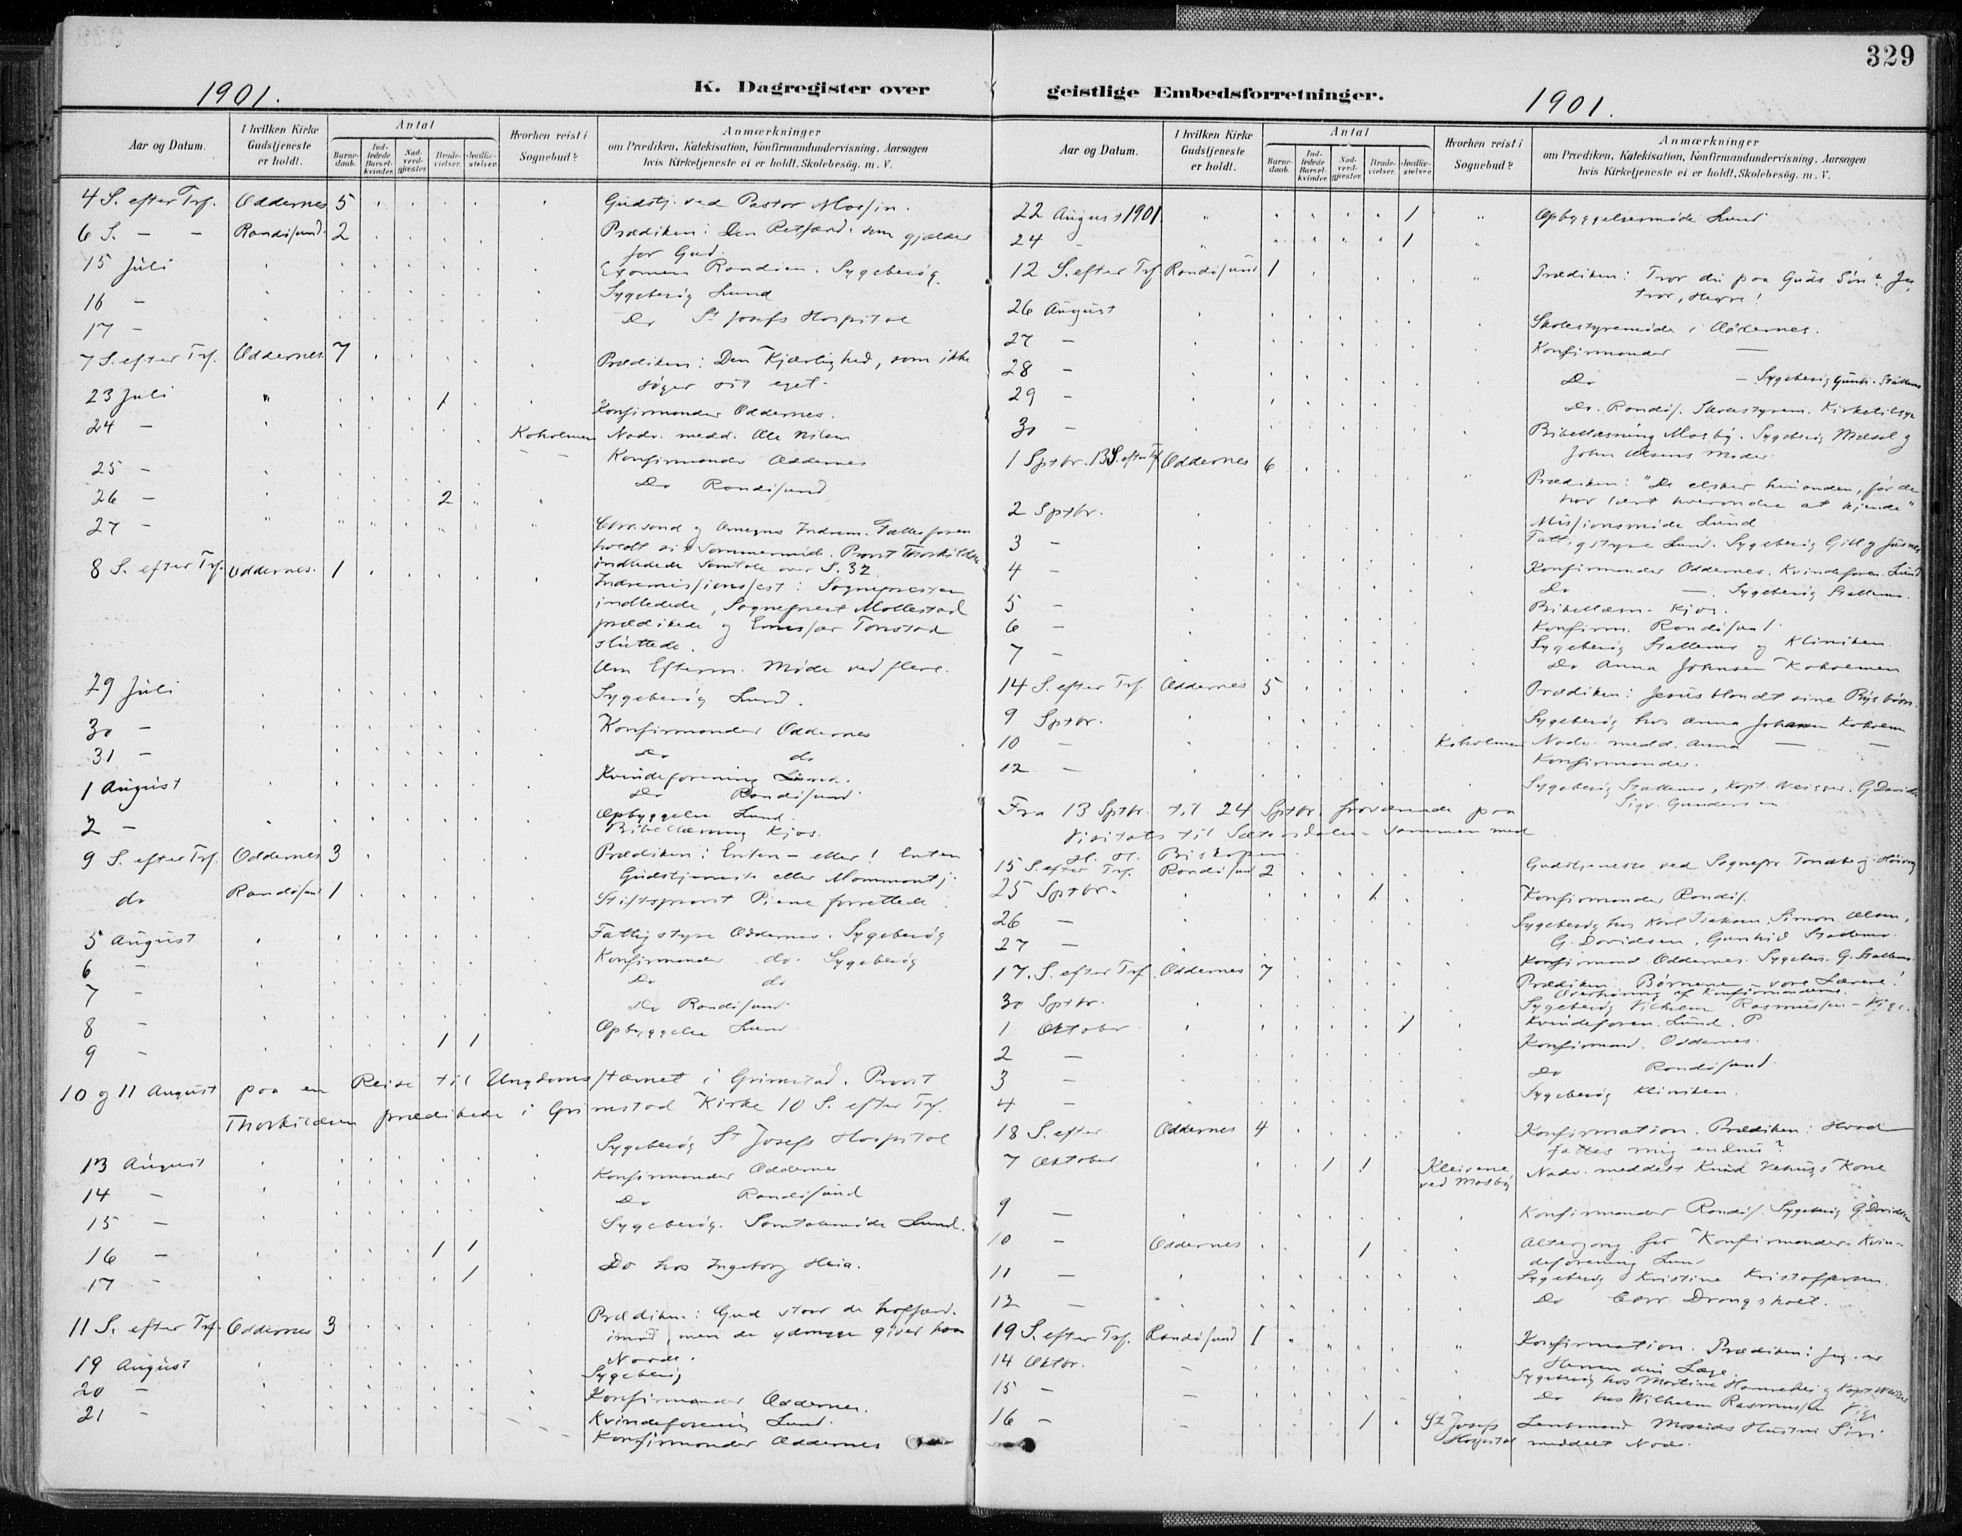 329
1901.
K. Dagregister over
Aar og Datum.
I hvilken Kirke Gudstjeneste er holdt.
Antal
Barnedaab.
Indledede Barselkvinder.
Nadverdgjester.
Brudevielser.
Jordfæstelser.
Hvorhen reist i Sognebud?
Anmærkninger
om Prædiken, Katekisation, Konfirmandundervisning, Aarsagen
hvis Kirketjeneste ei er holdt, Skolebesög. m. V.
4 S. efter Trf. Oddernes 5 Gudstj. ved Pastor
6 S. — — Randøsund 2 Prædiken: Den Retfærd. som gjælder
for Gud.
15 Juli Examen Randøen. Sygebesøg
16 — Sygebesøg Lund
17 — Do St Josefs Hospital
7 S. efter Trf. Oddernes 7 Prædiken: Den Kjærlighed, som ikke
søger sit eget.
23 Juli " 1 Konfirmander Oddernes.
24 — Koholmen Nadv. medd. Ole Nilsen
25 — Konfirmander Oddernes
26 — 2 Do Randøsund
27 —
holdt sit Sommermøde. Provst Thorkildsen
8 S. efter Trf. Oddernes. 1 indledede Samtale over S. 32
Indremissionsfest: Sognepresten
indledede, Sogneprest Mollestad
prædikede og Tonstad
sluttede.
Om Efterm. Møde ved flere.
29 Juli Sygebesøg Lund.
30 — Konfirmander Oddernes
31 — Do do
1 August Kvindeforening Lund.
Do Randøsund
2 — Opbyggelse Lund.
Bibellæsning Kjos.
9 S. efter Trf. Oddernes 3 Prædiken: Enten – eller! Enten
Gudstjeneste eller Mammontj.
do Randøsund 1 Stiftsprovst Piene forrettede.
5 August Fattigstyre Oddernes. Sygebesøg
6 — Konfirmander do. Sygebesøg
7 — Do do
Do Randøsund
8 — Opbyggelse Lund
9 — 1 1
10 og 11 August paa en Reise til Ungdomsstævnet i Grimstad. Provst
Thorkildsen prædikede i Grimstad Kirke 10 S. efter Trf.
Sygebesøg St Josefs Hospital
13 August Konfirmander Oddernes
14 — Do Randøsund
15 — Sygebesøg. Samtalemøde Lund.
16 — 1 1 Do hos Ingeborg Heia.
17 — 1
11 S. efter Trf. Oddernes 3 Prædiken: Gud staar de hoffærd.
imod, men de ydmyge giver han
Naade.
19 August Sygebesøg
20 — Konfirmander Oddernes.
21 — Kvindeforening Lund.
Konfirmander Oddernes
geistlige Embedsforretninger.
1901.
Aar og Datum.
I hvilken Kirke Gudstjeneste er holdt.
Antal
Barnedaab.
Indledede Barselkvinder.
Nadverdgjester.
Brudevielser.
Jordfæstelser.
Hvorhen reist i Sognebud?
Anmærkninger
om Prædiken, Katekisation, Konfirmandundervisning, Aarsagen
hvis Kirketjeneste ei er holdt, Skolebesög. m. V.
22 August 1901 " 1 " Opbyggelsesmøde Lund
24 — " 1 "
12 S. efter Trf. Randøsund 1 " Prædiken: Tror du paa Guds Søn? Jeg
tror, Herre!
26 August Skolestyremøde i Oddernes.
27 — Konfirmander —
28 — Do — Sygebesøg
29 — Do. Randøs. Skolestyrem. Kirketilsyn
30 — Bibellæsning Mosby. Sygebesøg
John Olsens Moder.
1 Sptbr. 13 S. efter Trf. Oddernes 6 Prædiken: "De elsker hinanden, før de
har lært hverandre at kjende"
2 Sptbr. Missionsmøde Lund
3 — Fattigstyre Lund. Sygebesøg
4 — Konfirmander Oddernes. Kvindeforen. Lund
Do — Sygebesøg
5 — Bibellæsn. Kjos.
6 — Konfirm. Randøsund.
7 — Sygebesøg og Kliniken.
Do Anna Johnsen Koholmen
14 S. efter Trf. Oddernes 5 Prædiken: Jesus blandt sine Bysbørn.
9 Sptbr. Sygebesøg hos Anna Johnsen Koholmen
10 — Koholmen Nadv. medd. Anna — —
12 — Konfirmander.
Sygebesøg
Fra 13 Sptbr. til 24 Sptbr. fraværende paa
Visitats til Sætersdalen sammen med
H. H. Biskopen
15 S. efter Trf. Randøsund 2 Gudstjeneste ved Sognepr.
25 Sptbr. 1 Konfirmander Randøs.
26 — Sygebesøg hos Karl Isaksen, Simon Olsen,
27 — G. Davidsen,
Konfirmand. Oddernes. Sygebes.
17. S. efter Trf. Oddernes 7 Prædiken: Børnene – vore Lærere!
Overhøring af Konfirmanderne.
30 Sptbr. Sygebesøg Vilhelm Rasmussen –
1 Oktober 1 Kvindeforen. Lund.
2 — Konfirmand. Oddernes.
3 — Do Randøsund.
4 — Sygebesøg Kliniken.
18 S. efter Oddernes 4 Konfirmation. Prædiken: Hvad
fattes mig endnu?
7 Oktober 1 1 Kleivene
ved Mosby Nadv. meddelt Knud Kone
9 — Konfirmander Randøs. Sygebesøg G. Davidsen
10 — Oddernes 1 Altergang for Konfirmander. Kvin-
deforening Lund
11 — Sygebesøg Kristine Kristoffersen.
12 — Do Drangsholt.
19 S. efter Trf. Randøsund 1 " " Konfirmation. Prædiken: Jeg er
Herren din Læge.
14 Oktbr. — Sygebesøg hos Martine
15 — — Do hos Wilhelm Rasmussen
16 — 1 St Josefs
Hospital Lensmand Moseids Hustru Siri
meddelt Nadv.